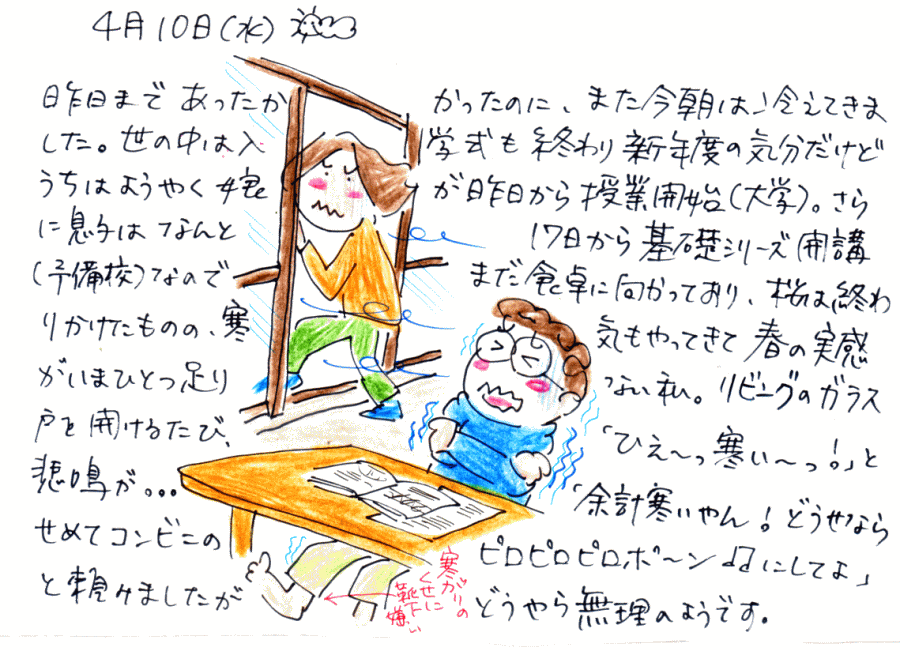 4月10日(水)
昨日まで あったかかったのに、また今朝は冷えてきま
した。世の中は入学式も終わり新年度の気分だけど
うちはようやく娘が昨日から授業開始(大学)。さら
に息子はなんと17日から基礎シリーズ開講
(予備校)なのでまだ食卓に向かっており、桜は終わ
りかけたものの、寒気もやってきて春の実感
がいまひとつ足りない私。リビングのガラス
戸を開けるたび、「ひえ〜っ寒い〜っ!」と
悲鳴が。。。「余計寒いやん!どうせなら
せめてコンビニのピロピロピロポ〜ン♫にしてよ」
と頼みましたがどうやら無理のようです。
寒がりの
くせに
靴下嫌い